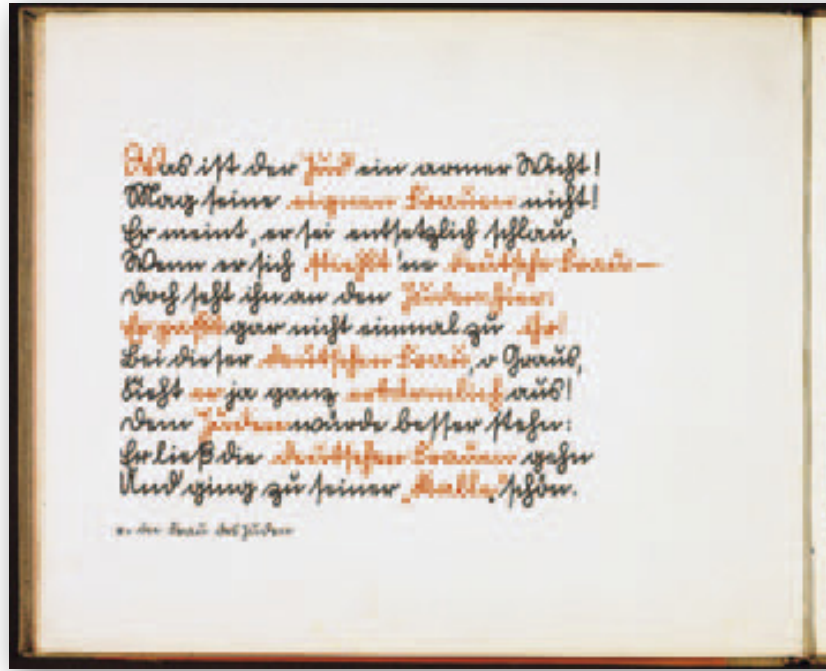 Was ist der Jud ein armer Wicht!
Mag seine eignen Frauen nicht!
Er meint, er sei entsetzlich schlau,
Wenn er sich stiehlt 'ne deutsche Frau—
Doch seht ihn an den
Er paßt gar nicht einmal zu ihr!
Bei dieser deutschen Frau, o Graus,
Sieht er ja ganz erbärmlich aus!
Dem Juden würde besser stehn:
Er ließ die deutschen Frauen gehn
Und ging zu seiner „Kalle“ schön.
der Frau des Juden